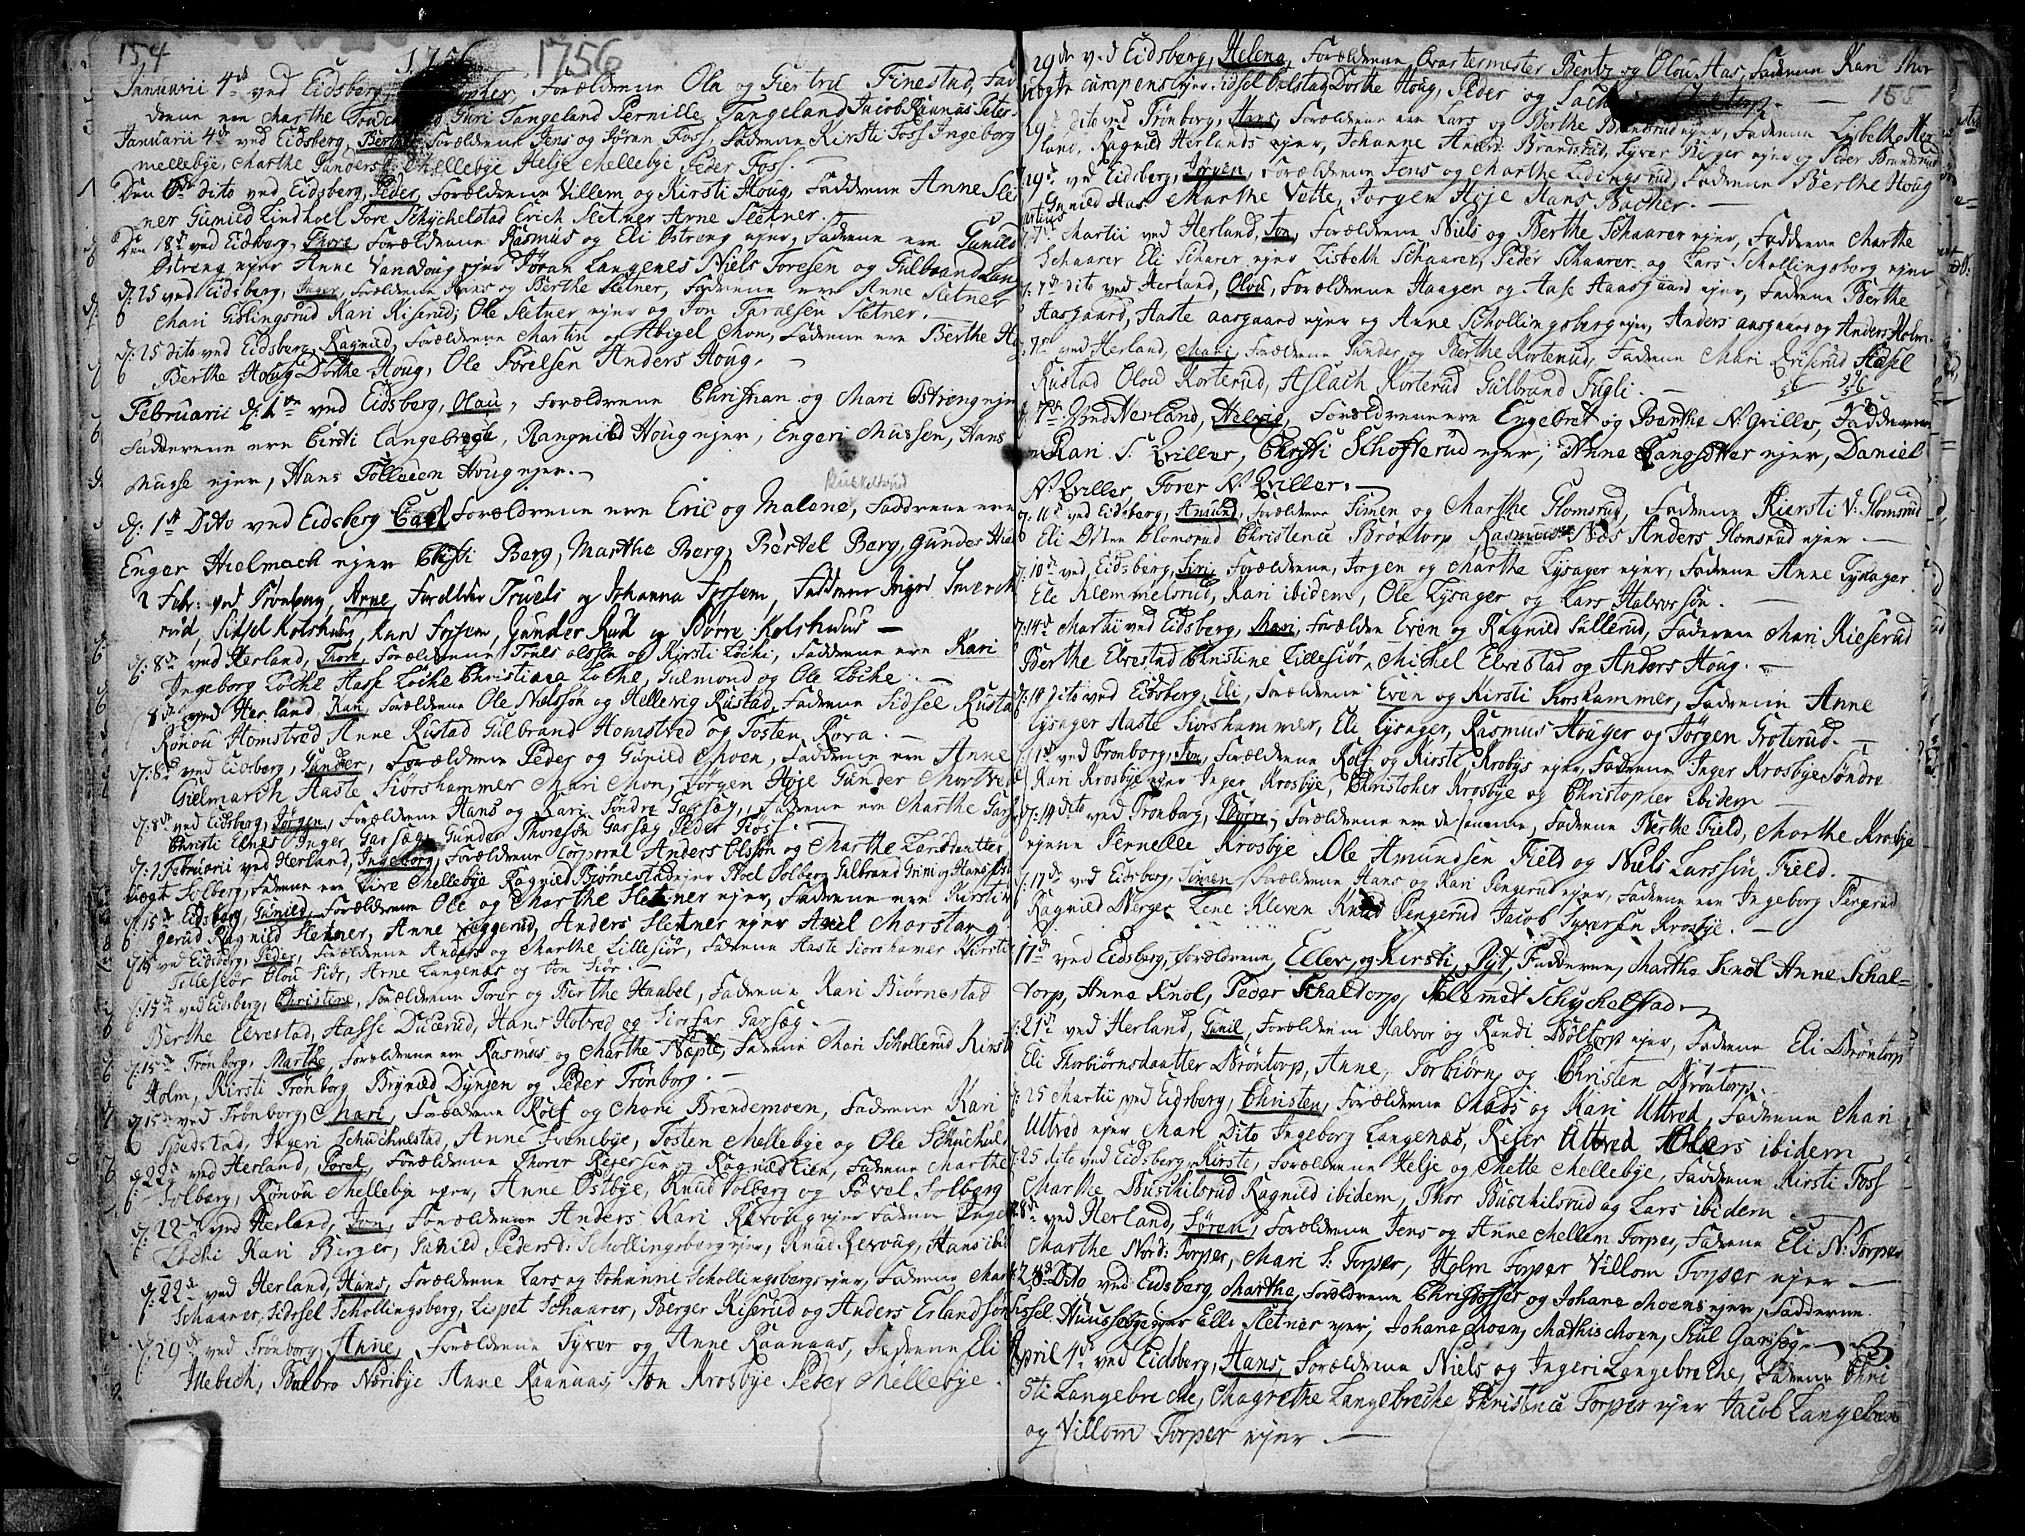 154
1756 1756
Januarii 4de ved Eidsberg, Forældrene Ola og Giertru Finestad, Fad
derne ere Marthe Guri Tangeland Pernille Tangeland Jacob Rasmus Peter
Januarii 4de ved Eidsberg, Berthe Forældrene Jens og Jøran Foss, Faderne Kirsti Foss Ingeborg
mellebye, Marthe Gunders Mellebye Helje Mellebye Peder Foss.
Den 6de dito ved Eidsberg, Peder, Forældrene Villem og Kirsti Houg, Fadderne Anne Slet
ner Gunild Lindhoel Tore Schychelstad Erich Sletner Arne Sletner.
Den 18de ved Eidsberg, Thore Forældrene Rasmus og Eli Ostreng ejer, Faderne ere Gunild
Ostreng ejer Anne Vandoug ejer Jøran Langenes Niels Toresen og Gulbrand Lan
d: 25 ved Eidsberg, Inger, Forældrene Hans og Birthe Sletner, Faderne ere Anne Sletner
Mari Gislingsrud Kari Kiserud, Ole Sletner ejer og Jon Taralsen Sletner.
d: 25 dito ved Eidsberg, Ragnild, Forældrene Martin og Abigel Mon, Faderne ere Berthe H
Berthe Houg Dorthe Houg, Ole Torelsen Anders Houg.
Februarii d: 1ste ved Eidsberg, Olau, Forældrene Christian og Mari Ostreng ejer
Fadderene ere Cirsti Langebrege, Rangnild Houg ejer, Engeri Mussen, Hans
Musse ejer, Hans Tollesen Houg ejer.
Buskelsrud
d: 1ste Dito ved Eidsberg Carl Forældrene ere Eric og Malene, Fadderne ere
Enger Hielmach ejer Christi Berg, Marthe Berg, Bertel Berg, Gunder Hiel
1 Febr: ved Trønberg, Arne, Forældre Truels og Johanna Forsem, Faddere Inger Smerch
rud, Sidsel Kolshuus, Kari Forsem, Gunder Rud og Børre Kolshuus
d: 8de ved Herland, Thore, Forældrene Truls Olssøn og Kirsti Løcki, Fadderne ere Kari
Ingeborg Løche Hasse Løche Christiane Løche, Gulmond og Ole Løche.
8de ved Herland, Kari, Forældrene Ole Nielssøn og Hellevig Rustad, Faderne Sidsel Rusta
Ronou Homstved Anne Rustad Gulbrand Homstved og Tosten Kora.
d: 8de ved Eidsberg, Gunder, Forældrene Peder og Gunild Moen, Fadderne ere Anne
Gielmarch Haste Siorshammer Mari Mon, Jørgen Hoje Gunder Morstad
d: 8de ved Eidsberg, Jørgen, Forældrene Hans og Kari Søndre Garsæg, Faderne ere Marthe Gars
Christi Elnes Inger Garsæg Gunder Thoresøn Garsæg Peder Fiøs.
d: 9 Februarii ved Herland, Ingeborg, Forældrene Corporal Anders Olssøn og Marthe Larsdaatter
Liægt Solberg, Faderne ere Live Mellebye Ragnild Biørnestad ejer Poel Solberg Gulbrand Grini og Hans
d: 15de Eidsberg, Gunild, Forældrene Ole og Marthe Sletner ejer, Faderne ere Kirsti
gerud Ragnild Sletner, Anne Viggerud, Anders Sletner ejer Amel Morstad
d: 15 ved Eidsberg, Peder, Forældrene Anders og Marthe Lillesiør, Faderne Haste Siorshamer Kirsti
Lillesiør Olou Siør, Arne Langenæs og Jon Siør.
d: 15de ved Eidsberg, Christine, Forældrene Torer og Berthe Haabel, Faderne Kari Biørnestad
Berthe Elvestad, Hasse Ducerud, Hans Hotved og Siofar Garsæg.
d: 15de Trønborg, Marthe, Forældrene ere Rasmus og Marthe Næple, Faderne Mari Schollerud Kirsti
Holm, Kirsti Trønborg Brynild Dyngen og Peder Trønborg.
d: 15de ved Trønborg, Mari, Forældrene Rolf og Mari Brendemoen, Faderne Kari
Spedstad, Ingeri Schuchelstad, Anne Trinebye, Tosten Mellebye og Ole Schychel
d: 22de ved Herland, Povel, Forældrene Thorer Rejersen og Ragnild Lien, Faderne Marthe
Solberg, Ronou Mellebye ejer, Anne Østbye, Knud Solberg og Povel Solberg
d: 22de ved Herland, Jon, Forældrene Anders Kari Revoug ejer Faderne Inge
Løcki Kari Berger, Gunild Pedersd: Schollingsberg ejer, Knud Revoug, Hans ibid
d: 22de ved Herland, Hans, Forældrene Lars og Johanne Schollingsbergs ejer, Faderne Mari
Schaarer, Sidsel Schollingsberg, Lispet Schaarer, Berger Riserud og Anders Erlandsøn
d: 29de ved Trønborg, Anne, Forældrene Syver og Anne Raanaas, Faderne Eli
Mebich, Gulbro Noribye Anne Raanaas, Jon Krosbye Peder Mellebye.
29de ved Eidsberg, Helena, Forældrene Qvartermester Bentz og Olou Aas, Faderne Kari Thor
Sidsel Dalstad Dorthe Houg, Peder og
155
29de dito ved Trønborg, Hans, Forældrene ere Lars og Berthe Brandsrud ejer, Faderne Lysbethe Her
land, Ragnild Herlands ejer, Johanne Anders Brandsrud, Syver Berger ejer og Peder Brandsrud
29de ved Eidsberg, Jørgen, Forældrene Jens og Marthe Edingsrud, Faderne Berthe Houg
Gunild Aas Marthe Vette, Jørgen Hoje Hans Bacher.
Martius
7de Martii ved Herland, Jon, Forældrene Niels og Berthe Schaarer ejer, Faderne Marthe
Schaarer Eli Scharer, ejer Lisbeth Schaarer, Peder Schaarer og Lars Schollingsberg ejer
d: 7de dito ved Herland, Olou, Forældrene Haagen og Aase Aaasgaard ejer, Faderne Berthe
Aasgaard, Haste aasgaard ejer og Anne Schollingsberg ejer, Anders aasgaard og Anders Holm.
7de ved Herland, Mari, Forældrene Gunder og Berthe Korterud, Faderne Mari Eriserud Hasse
Rustad Olou Korterud, Aslach Korterud Gulbrand Fugli.
d: 7de ved Herland, Helvig, Forældrene ere Engebret og Berthe N: Qviller, Fadderne
ere Kari S. Qviller, Christi Schofterud ejer, Anne Langsetter ejer, Daniel
N: Qviller, Torer N: Qviller.
d: 10de ved Eidsberg, Amund, Forældrene Simen og Marthe Glomsrud, Faderne Kiersti V: Glomsrud
Eli Østen Glomsrud Christence Brøntorp Rasmus Næs Anders Glomsrud ejer.
d: 10de ved Eidsberg, Siri, Forældrene, Jørgen og Marthe Lysager ejer, Faderne Anne Lysager
Ele Klemmelsrud, Kari ibidem, Ole Lysager og Lars Halvorsøn.
d: 14de Martii ved Eidsberg, Mari, Forælden Even og Ragnild Sullerud, Faderene Mari Rieserud
Berthe Elvestad Christine Lillesiør, Michel Elvestad og Anders Houg.
d: 14 dito ved Eidsberg, Eli, Forældrene Even og Kirsti Siorshammer, Faderne Anne
Lysager Haste Siorshammer, Eli Lysager, Rasmus Houger og Jørgen Groterud.
d: 1de ved Trønborg, Jon, Forældrene Rolf og Kirsti Krobys ejer, Faderne Inger Krosbye Søndre
Kari Krosbye ejer Inger Krosbye, Christopher Krosbye og Christopher ibidem
d: 14 dito ved Trønborg, Børre, Forældrene ere desamme, Faderne Berthe Field, Marthe Krosbye
ejerne Pernelle Krosbye Ole Amundsen Field og Niels Larssøn, Field.
d: 17de ved Eidsberg, Simen, Forældrene Hans og Kari Pengerud ejer, Faderne ere Ingeborg Pengerud
Ragnild Nerger Lene Kleven Knud Pengerud Jacob Syversen Krosbye.
17de ved Eidsberg, Forældrene, Eller, og Kirsti, Pyt, Fadderne, Marthe Knol Anne Schal-
torp, Anne Knol, Peder Schaltorp, Klemet Schychelstad.
d: 21de ved Herland, Gunil, Forældrene Halvor og Randi Døltorp ejer, Faderne Eli Brøntorp
Eli Thorbiørnsdaatter Brøntorp, Anne, Torbiørn og Christen Brøntorp.
d: 25 Martii ved Eidsberg, Christen, Forældrene Mads og Kari Ultved, Faderne Mari
Ultved ejer Mari Dito Ingeborg Langenæs, Rejer Ultved Lars ibidem
d: 25 dito ved Eidsberg, Kirsti, Forældrene Helje og Mette Mellebye, Faderne Kirsti Foss
Marthe Buschilsrud Ragnild ibidem, Thor Buschilsrud og Lars ibidem.
28de ved Herland, Søren, Forældrene Jens og Anne Mellem Torper, Faderne Eli N: Torper
Marthe Nord: Torper, Mari S: Torper, Holm Torper Villom Torper ejer.
28de Dito ved Eidsberg, Marthe, Forældrene Christoffer og Johane Moens ejer, Fadderne
Sissel Huusebye ejer Elli Sletner ejer, Johane Moen, Mathis Moen, Skul Garsæg.
April 4de ved Eidsberg, Hans, Forældrene Niels og Ingeri Langebreche, Faderne Chri
sti Langebreche, Magrethe Langebreche Christence Torper ejer Jacob Langebrec
og Villom Torper ejer.